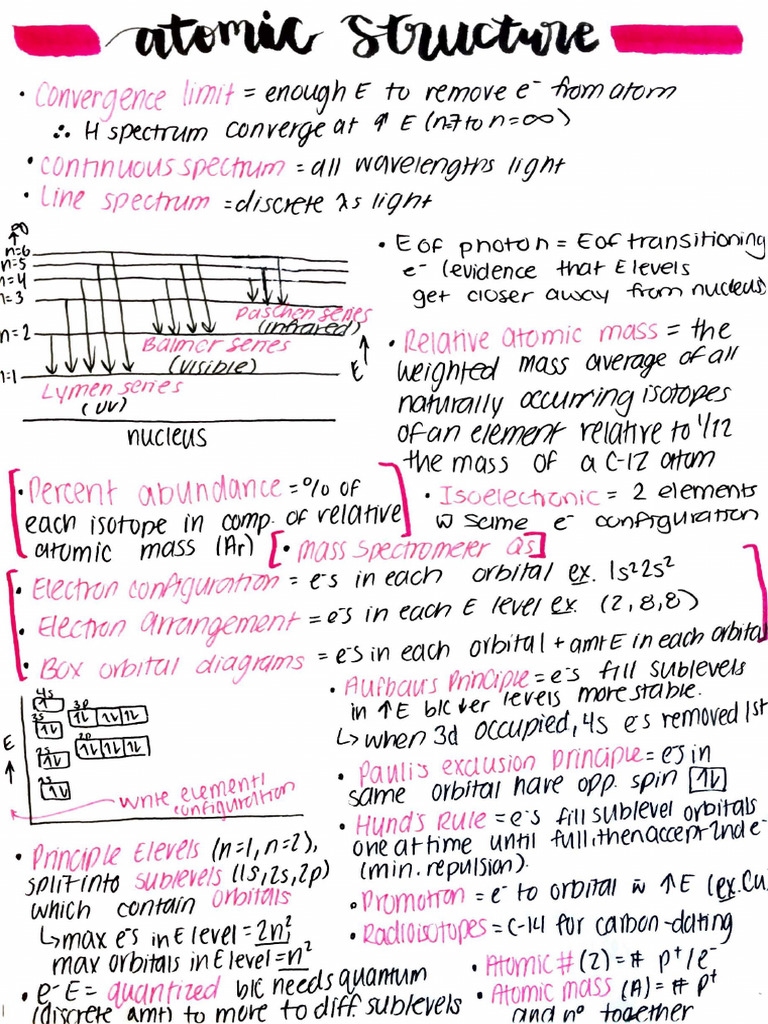 atomic structure
• Convergence limit = enough E to remove e⁻ from atom
∴ H spectrum converge at ↑ E (n=7 to n=∞)
• continuous spectrum = all wavelengths light
• Line spectrum = discrete λs light
∞
n=6
n=5
n=4
n=3
n=2
n=1
Paschen series
(infrared)
Balmer series
(visible)
E
Lymen series
(UV)
nucleus
• E of photon = E of transitioning
e⁻ (evidence that E levels
get closer away from nucleus)
• Relative atomic mass = the
weighted mass average of all
naturally occurring isotopes
of an element relative to 1/12
the mass of a C-12 atom
• Percent abundance = % of
each isotope in comp. of relative
atomic mass (Ar)
• Isoelectronic = 2 elements
w same e⁻ configuration
• Mass Spectrometer Qs
• Electron configuration = e⁻s in each orbital ex. 1s²2s²
• Electron arrangement = e⁻s in each E level ex. (2,8,8)
• Box orbital diagrams = e⁻s in each orbital + amt E in each orbital
4s
3p
3s
2p
2s
E
write element/
configuration
• Aufbau's Principle = e⁻s fill sublevels
in ↑E b/c ↓er levels more stable.
↳ when 3d occupied, 4s e⁻s removed 1st
• Pauli's exclusion principle = e⁻s in
same orbital have opp. spin 1↓
• Hund's Rule = e⁻s fill sublevel orbitals
one at time until full, then accept 2nd e⁻
(min. repulsion).
• Promotion = e⁻ to orbital w ↑E (ex. Cu)
• Radioisotopes = C-14 for carbon-dating
• Principle E levels (n=1, n=2),
split into sublevels (1s,2s,2p)
which contain orbitals
↳ max e⁻s in E level = 2n²,
max orbitals in E level = n²
• e⁻ E = quantized b/c needs quantum
(discrete amt) to more to diff. sublevels
• Atomic # (Z) = # p⁺/e⁻
• Atomic mass (A) = # p⁺
and n° together